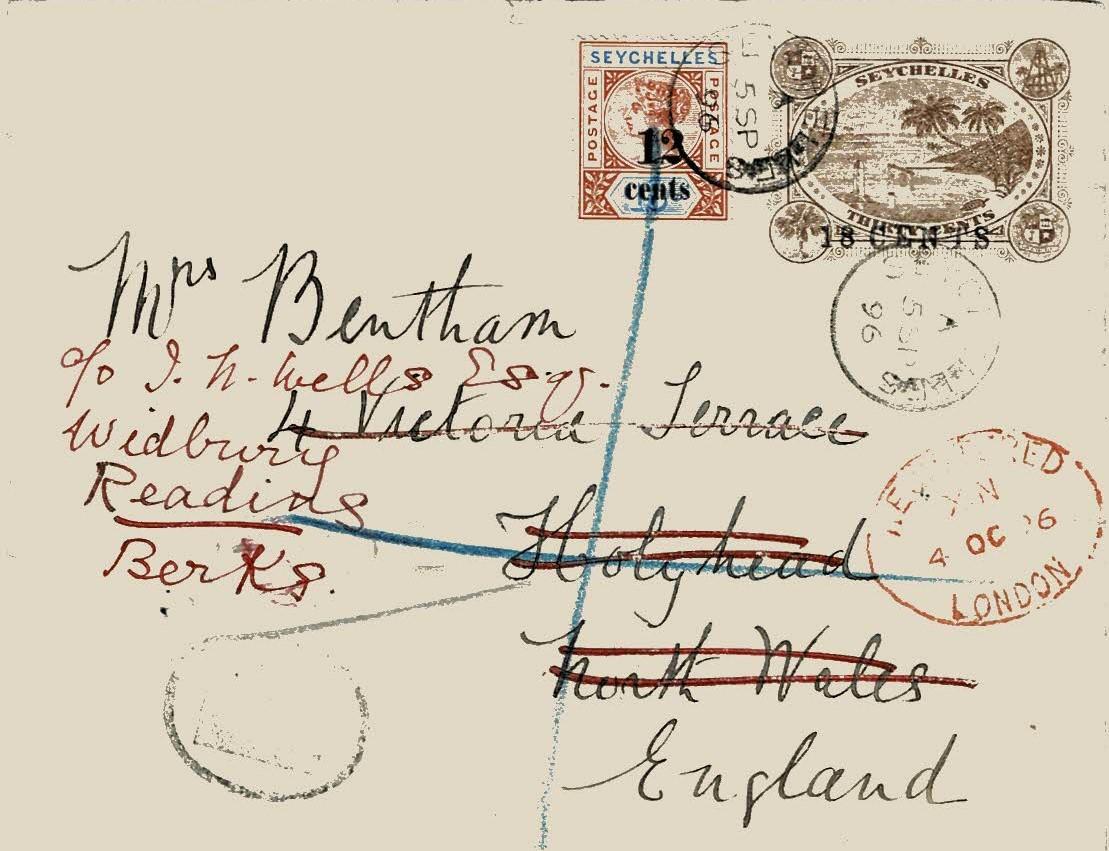 SEYCHELLES
POSTAGE
POSTAGE
12
cents
5 SP
96
SEYCHELLES
THIRTY CENTS
18 CENTS
A
5 SP
96
Mrs Bentham
c/o J. H. Wells Esqr.
4 Victoria Terrace
Widbury
Reading
Holyhead
Berks.
North Wales
England
REGISTERED
4 OC 96
LONDON